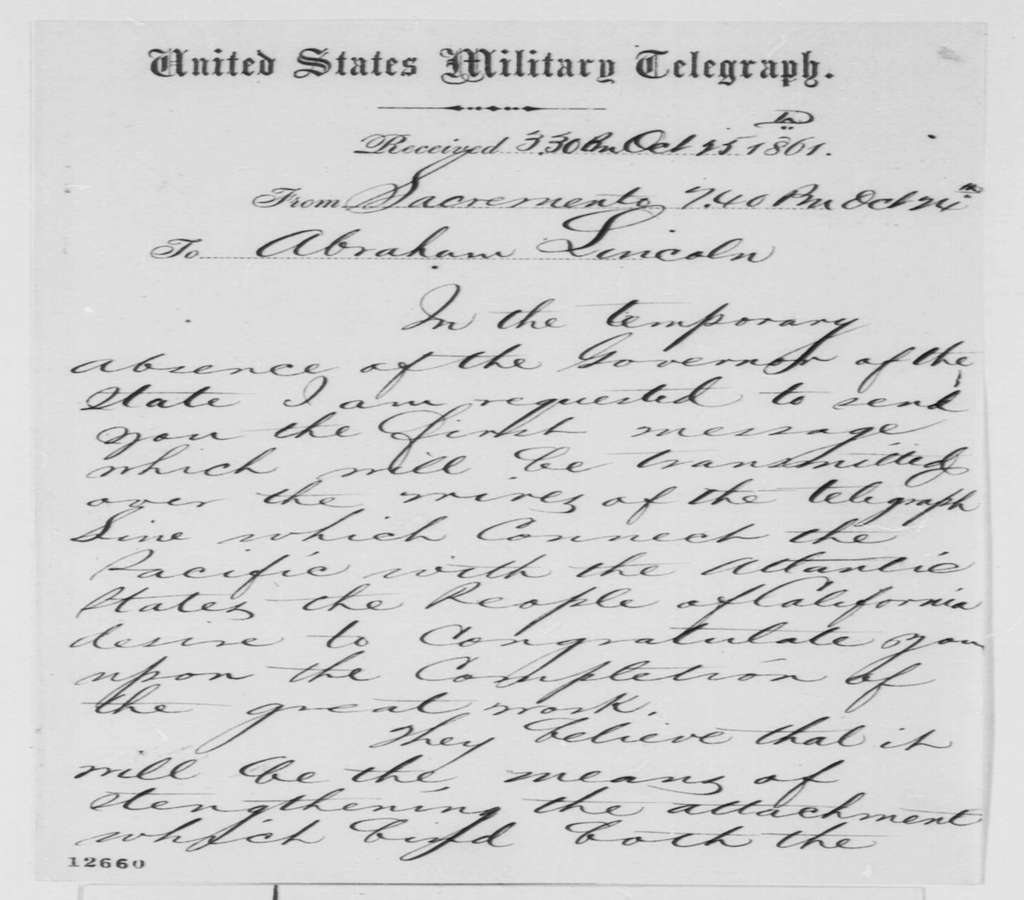 United States Military Telegraph.
Received 3.30 Pm Oct 25th 1861.
From Sacremento 7.40 Pm Oct 24th
To Abraham Lincoln
In the temporary
absence of the Governor of the
State I am requested to send
you the first message
which will be transmitted
over the wires of the telegraph
Line which Connect the
Pacific with the Atlantic
States, the People of California
desire to Congratulate you
upon the Completion of
the great work.
They believe that it
will be the means of
stengthening the attachment
which bind both the
12660